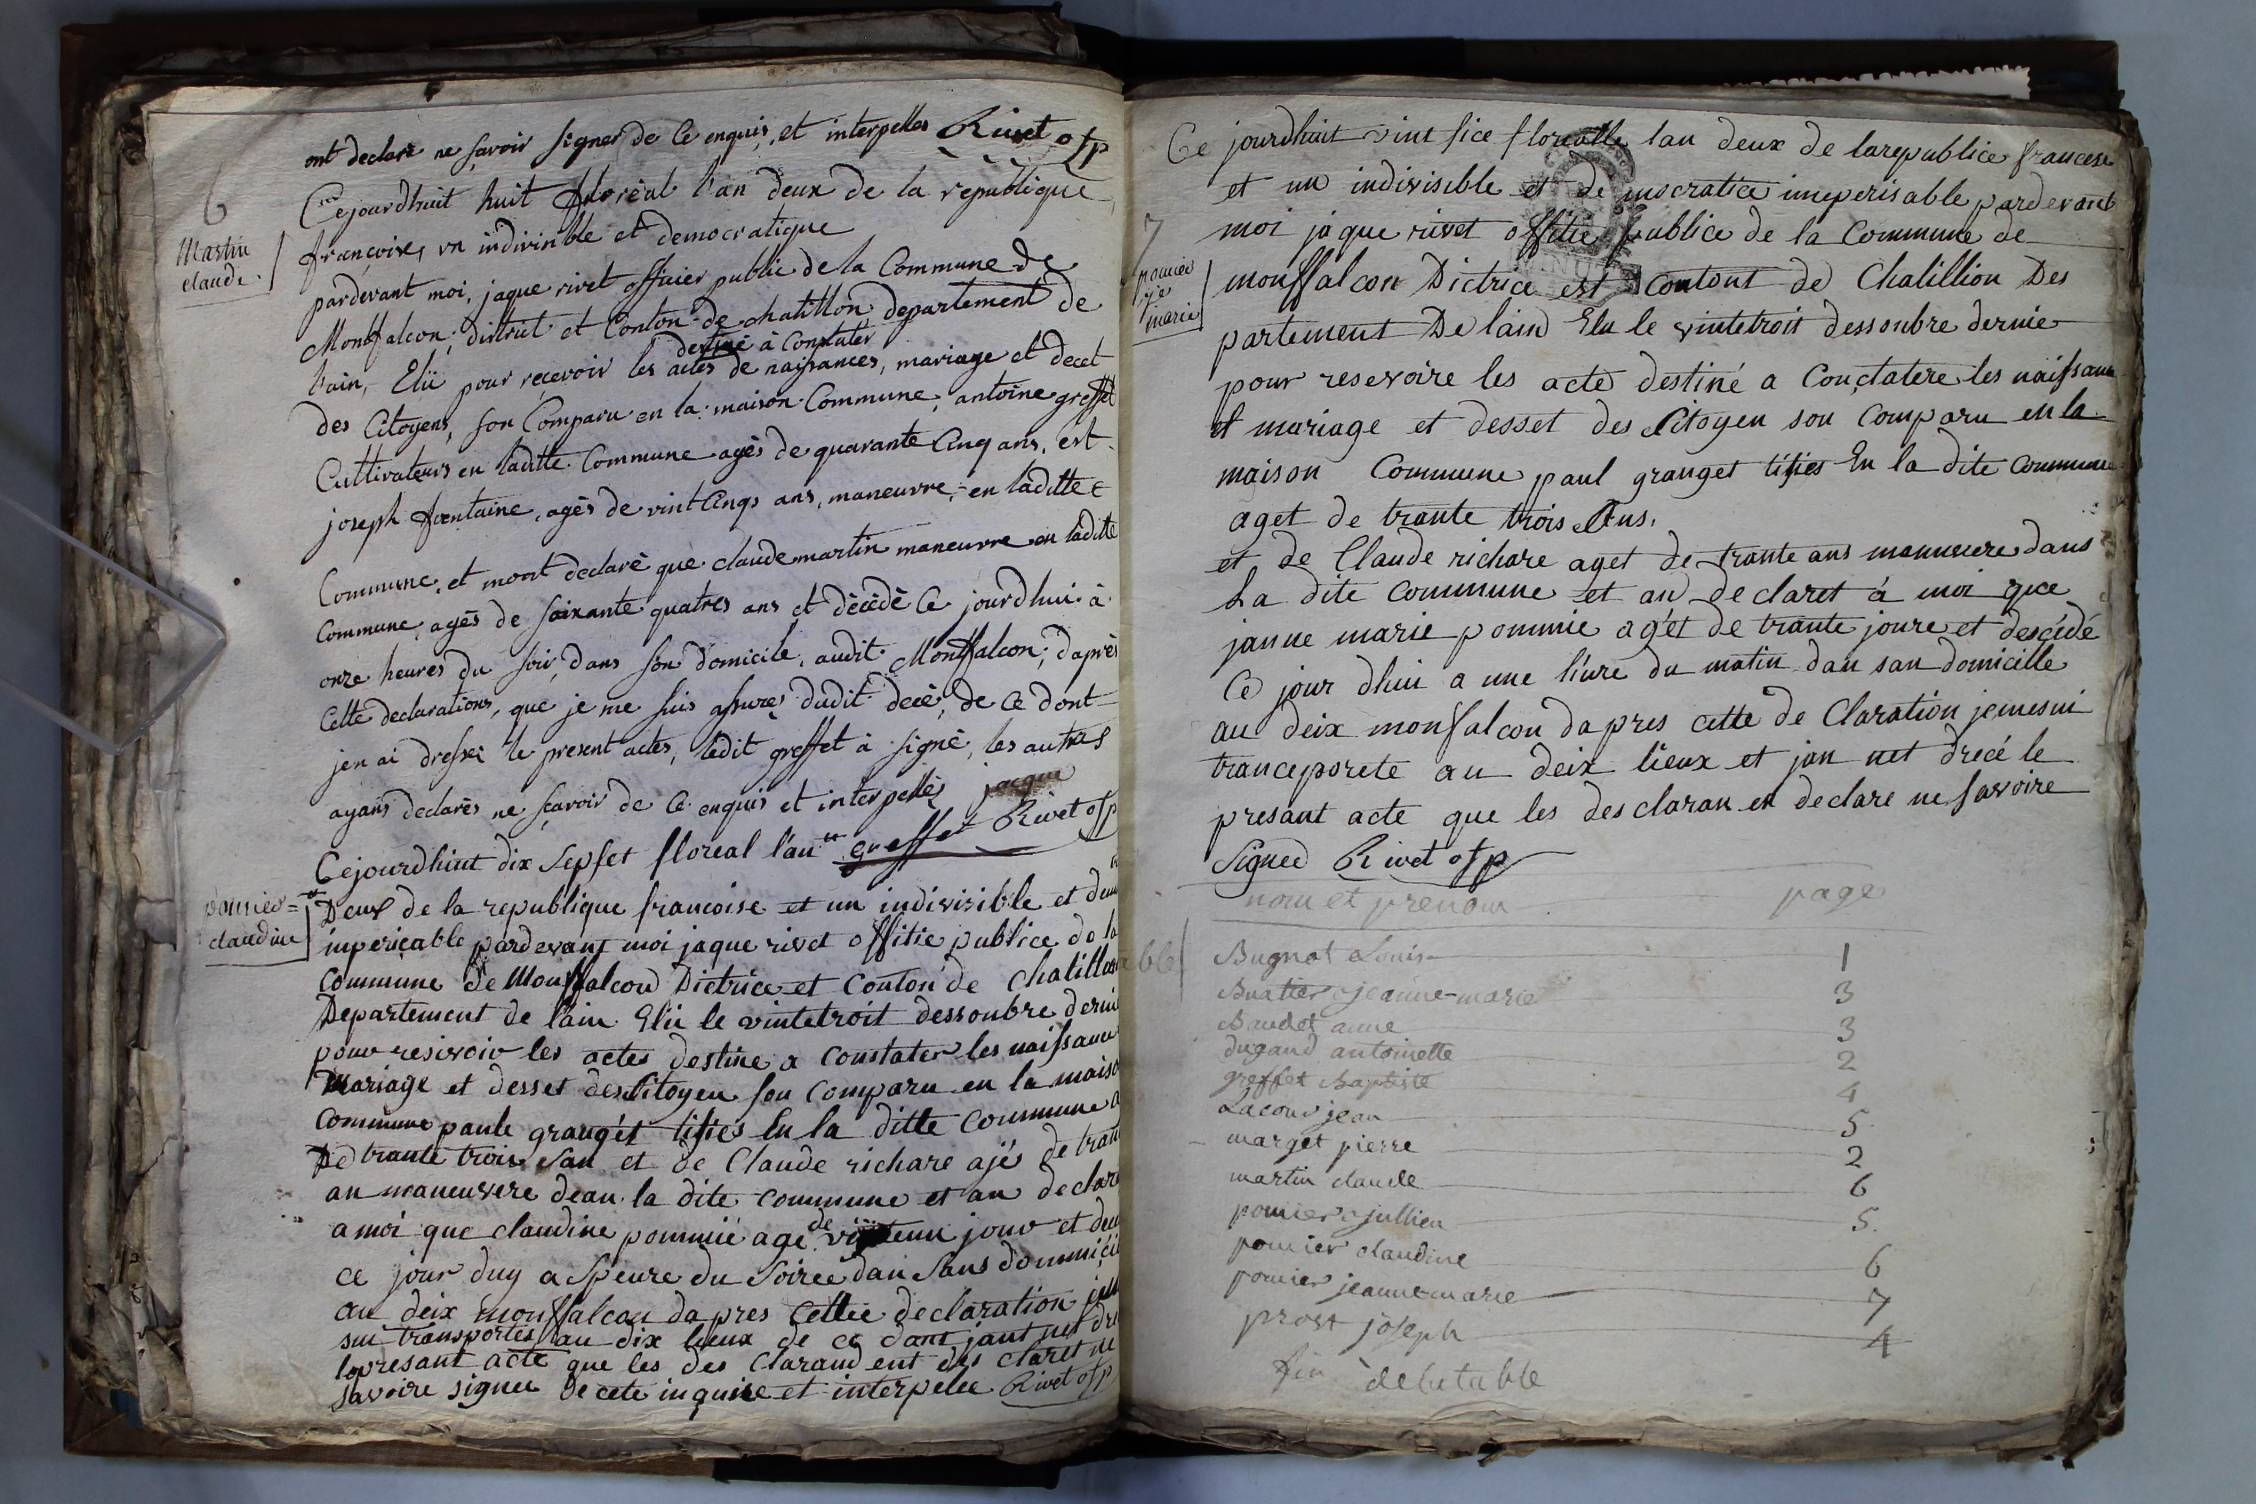 ont declare ne savoir signer de ce enquis, et interpelles Rivet ofp
6
Martin
claude.
Cejourdhuit huit floréal l'an deux de la république
françoise, un indivisible et democratique
pardevant moi, jaque rivet officier public de la Commune de
Montfalcon, district et Conton de chatillon departement de
destiné à Constater
l'ain, Elü pour recevoir les actes de naissances, mariage et decet
des Citoyens, son Comparu en la maison Commune, antoine greffet
Cultivateurs en laditte Commune agés de quarante Cinq ans, est
joseph fontaine, agés de vint Cinqs ans, maneuvre, en laditte
Commune, et mont declaré que claude martin maneuvre en laditte
Commune, agés de soixante quatres ans et décédé Ce jourdhui à
onze heures du soir, dans son domicile, audit Montfalcon, d'aprés
Cette declarations, que je me suis assures dudit decé, de Ce dont
jen ai dressé le present actes, ledit greffet à signé, les autres
ayans declarés ne sçavoir de Ce enquis et interpellés jacque
greffet Rivet ofp
pomier
claudine
Cejourdhuit dix sepfet floreal l'an
Deux de la republique francoise et un indivisible et dem
imperiçable pardevant moi jaque rivet offitie publice de la
Commune de Monffalcon Dictrice et Conton de Chatillon
Departement de l'ain Elü le vintetroit dessonbre dernie
pour resivoir les actes destine a Constater les naissance
Mariage et desset des Citoyen son Comparu en la maiso
Commune paule granget tisiés En la ditte Commune a
De trante trois San et de Claude richare ajés de trant
an maneuvere dean la dite Commune et an declare
de
a moi que claudine pommié agé jour et
ce jour duy a du Soiree dan Sans dommicil
au deix monffalcon da pres Cettee declaration
sui transportés au dix lieux de ce dant jant net dre
le presant acte que les des Clarand ent des claret ne
savoire signee de cete inquise et interpelee Rivet ofp
Ce jourdhuit vint sice florealle lan deux de larepublice francese
et un indivisible et de mocratice imperisable pardevant
7
pomier
jne
marie
moi jaque rivet offitie publice de la Commune de
monffalcon Dictrice est Contont de Chatillion Des
partement De lain Elu le vintetroit dessonbre dernie
pour resevoire les acte destiné a Conçtatere les naissance
et mariage et desset des Citoyen son Comparu en la
maison Commune paul granget tisies En la dite Commune
aget de trante trois Ans,
et de Claude richare aget de trante ans mannuere dans
La dite Commune et an de claret à moi que
janne marie pommie agét de trante joure et descédé
Ce jour dhui a une l'iure du matin dan san domicille
au deix monfalcon dapres cette de Claration jemesui
tranceporete au deix lieux et jan net drecé le
presant acte que les des claran en declare ne savoire
Signee Rivet ofp
nom et prenom page
Bugnot Louis 1
Buatier jeanne-marie 3
Baudet anne 3
dugand antoinette 2
greffet Baptiste 4
Lacour jean 5
marget pierre 2
martin claude 6
pomier jullien 5.
pomier claudine 6
pomier jeanne marie 7
prost joseph 4
fin de la table